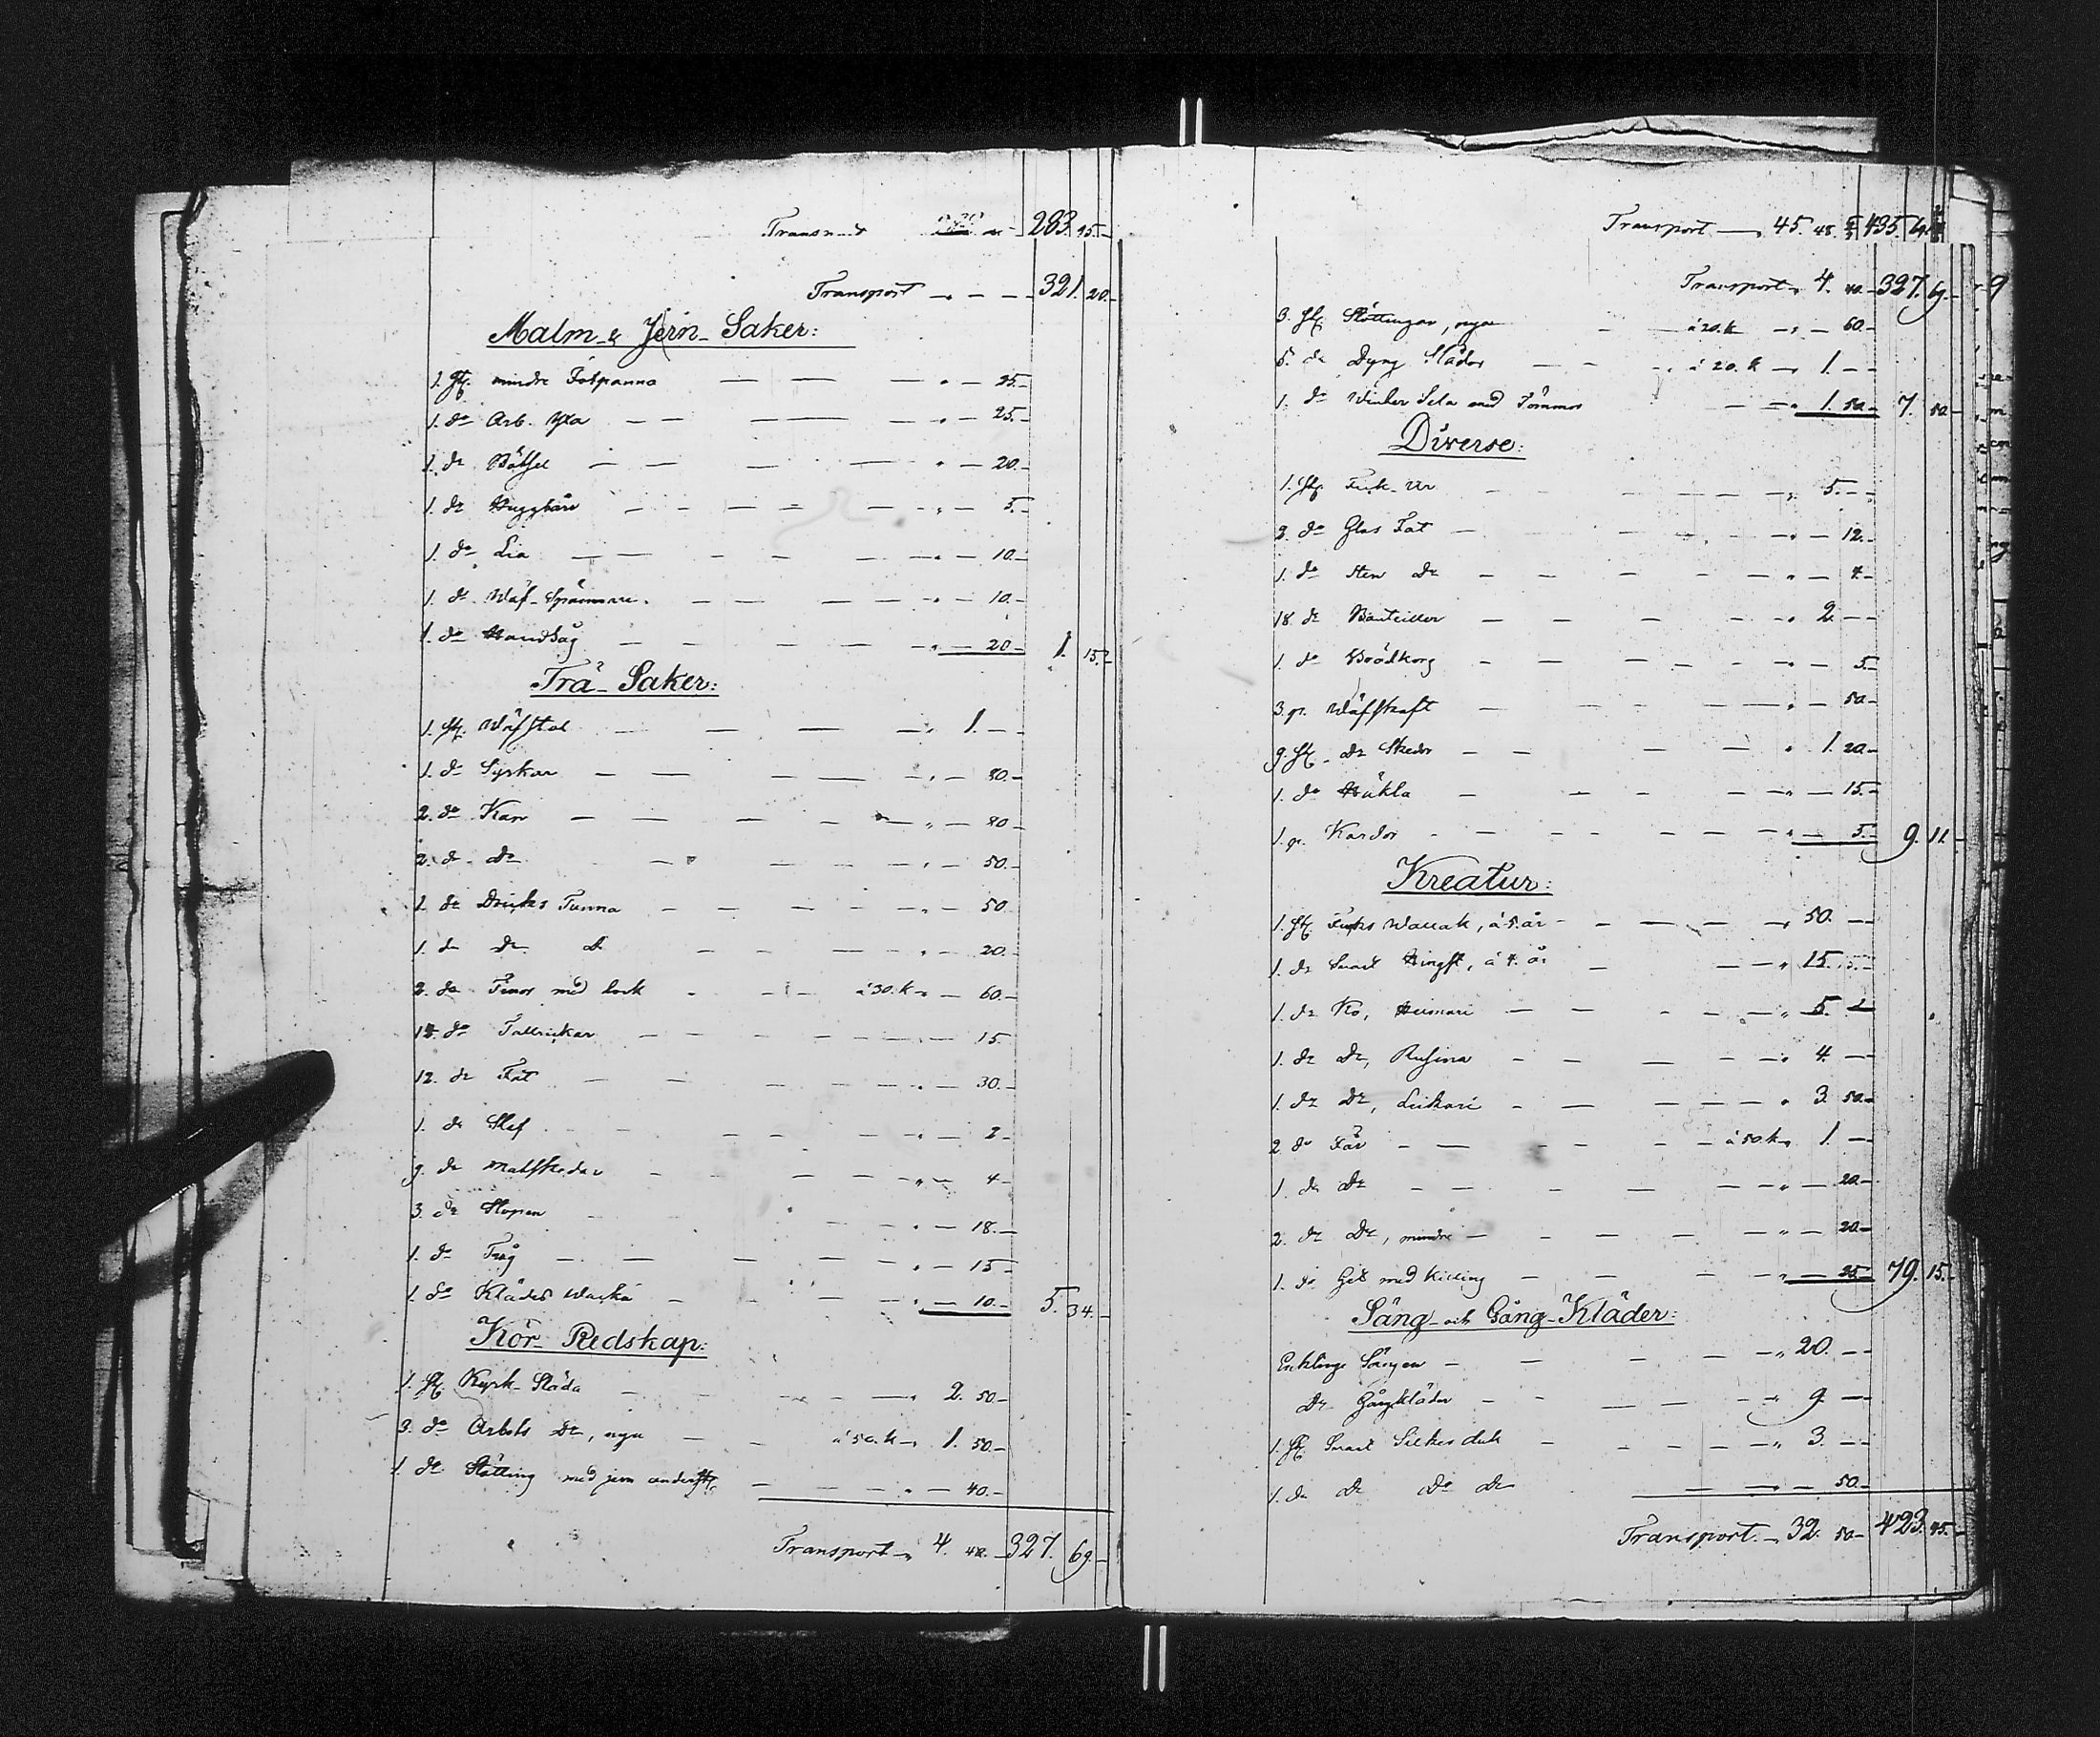 Transport 283. 95.
Transport 321. 20.
Malm- & Jern- Saker:
1. St. mindre Fotpanna 25.
1. do Arb. Yxa 25.
1. do Bötsel 20.
1. do 5.
1. do Lia 10.
1. do Wäf-Spännare 10.
1. do Handsåg 20 1. 15.
Trä- Saker:
1. St. Wäfstol 1.
1. do Syskar 80.
2. do Kar 80
2. do do 50.
1. do Dricks Tunna 50
1. do do d. 20.
2. do Finor med lock á 30. k 60.
18. do Tallrickar 15.
12. do Fat 30.
1. do Slef 2
9. do Matskedar 4
3. do Stopen 18.
1. do Tråg 15
1. do Kläder Wacka 10. 5. 34.
Kör- Redskap:
1. St. Kyrk-Släda 2. 50.
3. do Arbets do, nya á 50. k 1. 50.
1. do Stötting med jern 40.
Transport 4. 40. 327. 69.
Transport 45. 48. 435.
Transport 4. 40. 327. 69.
3. St. Stöttingar, nya á 20. k 60.
5. do Dyng Slädor á 20. k 1.
1. do Winter Sela med Tömmar 1. 50. 7. 50
Diverse:
1. St. Fick-Ur 5.
2. do Glas Fat 12.
1. do Sten do 4.
18. do Bouteiller 2.
1. do Brödkorg 5.
3. pr. Wäfskaft 50.
9. St. do Skedar 1. 20.
1. do Häkla 15.
1. pr. Kardor 5. 9. 11.
Kreatur:
1. St. Fuks Wallak, á 5. år 50.
1. do Svart Hingst, á 4. år 15.
1. do Ko, 5.
1. do do, Rusina 4.
1. do do, Leikari 3. 50.
2. do Får á 50. k 1.
1. do do 20.
2. do do, mindre 20.
1. do Get med Killing 25 79. 15.
Säng- och Gång-Kläder:
Enklings Sängen 20.
do Gångkläder 9.
1. St. Svart Silkes duk 3.
1. do do do do 50.
Transport 32. 50. 423. 45.